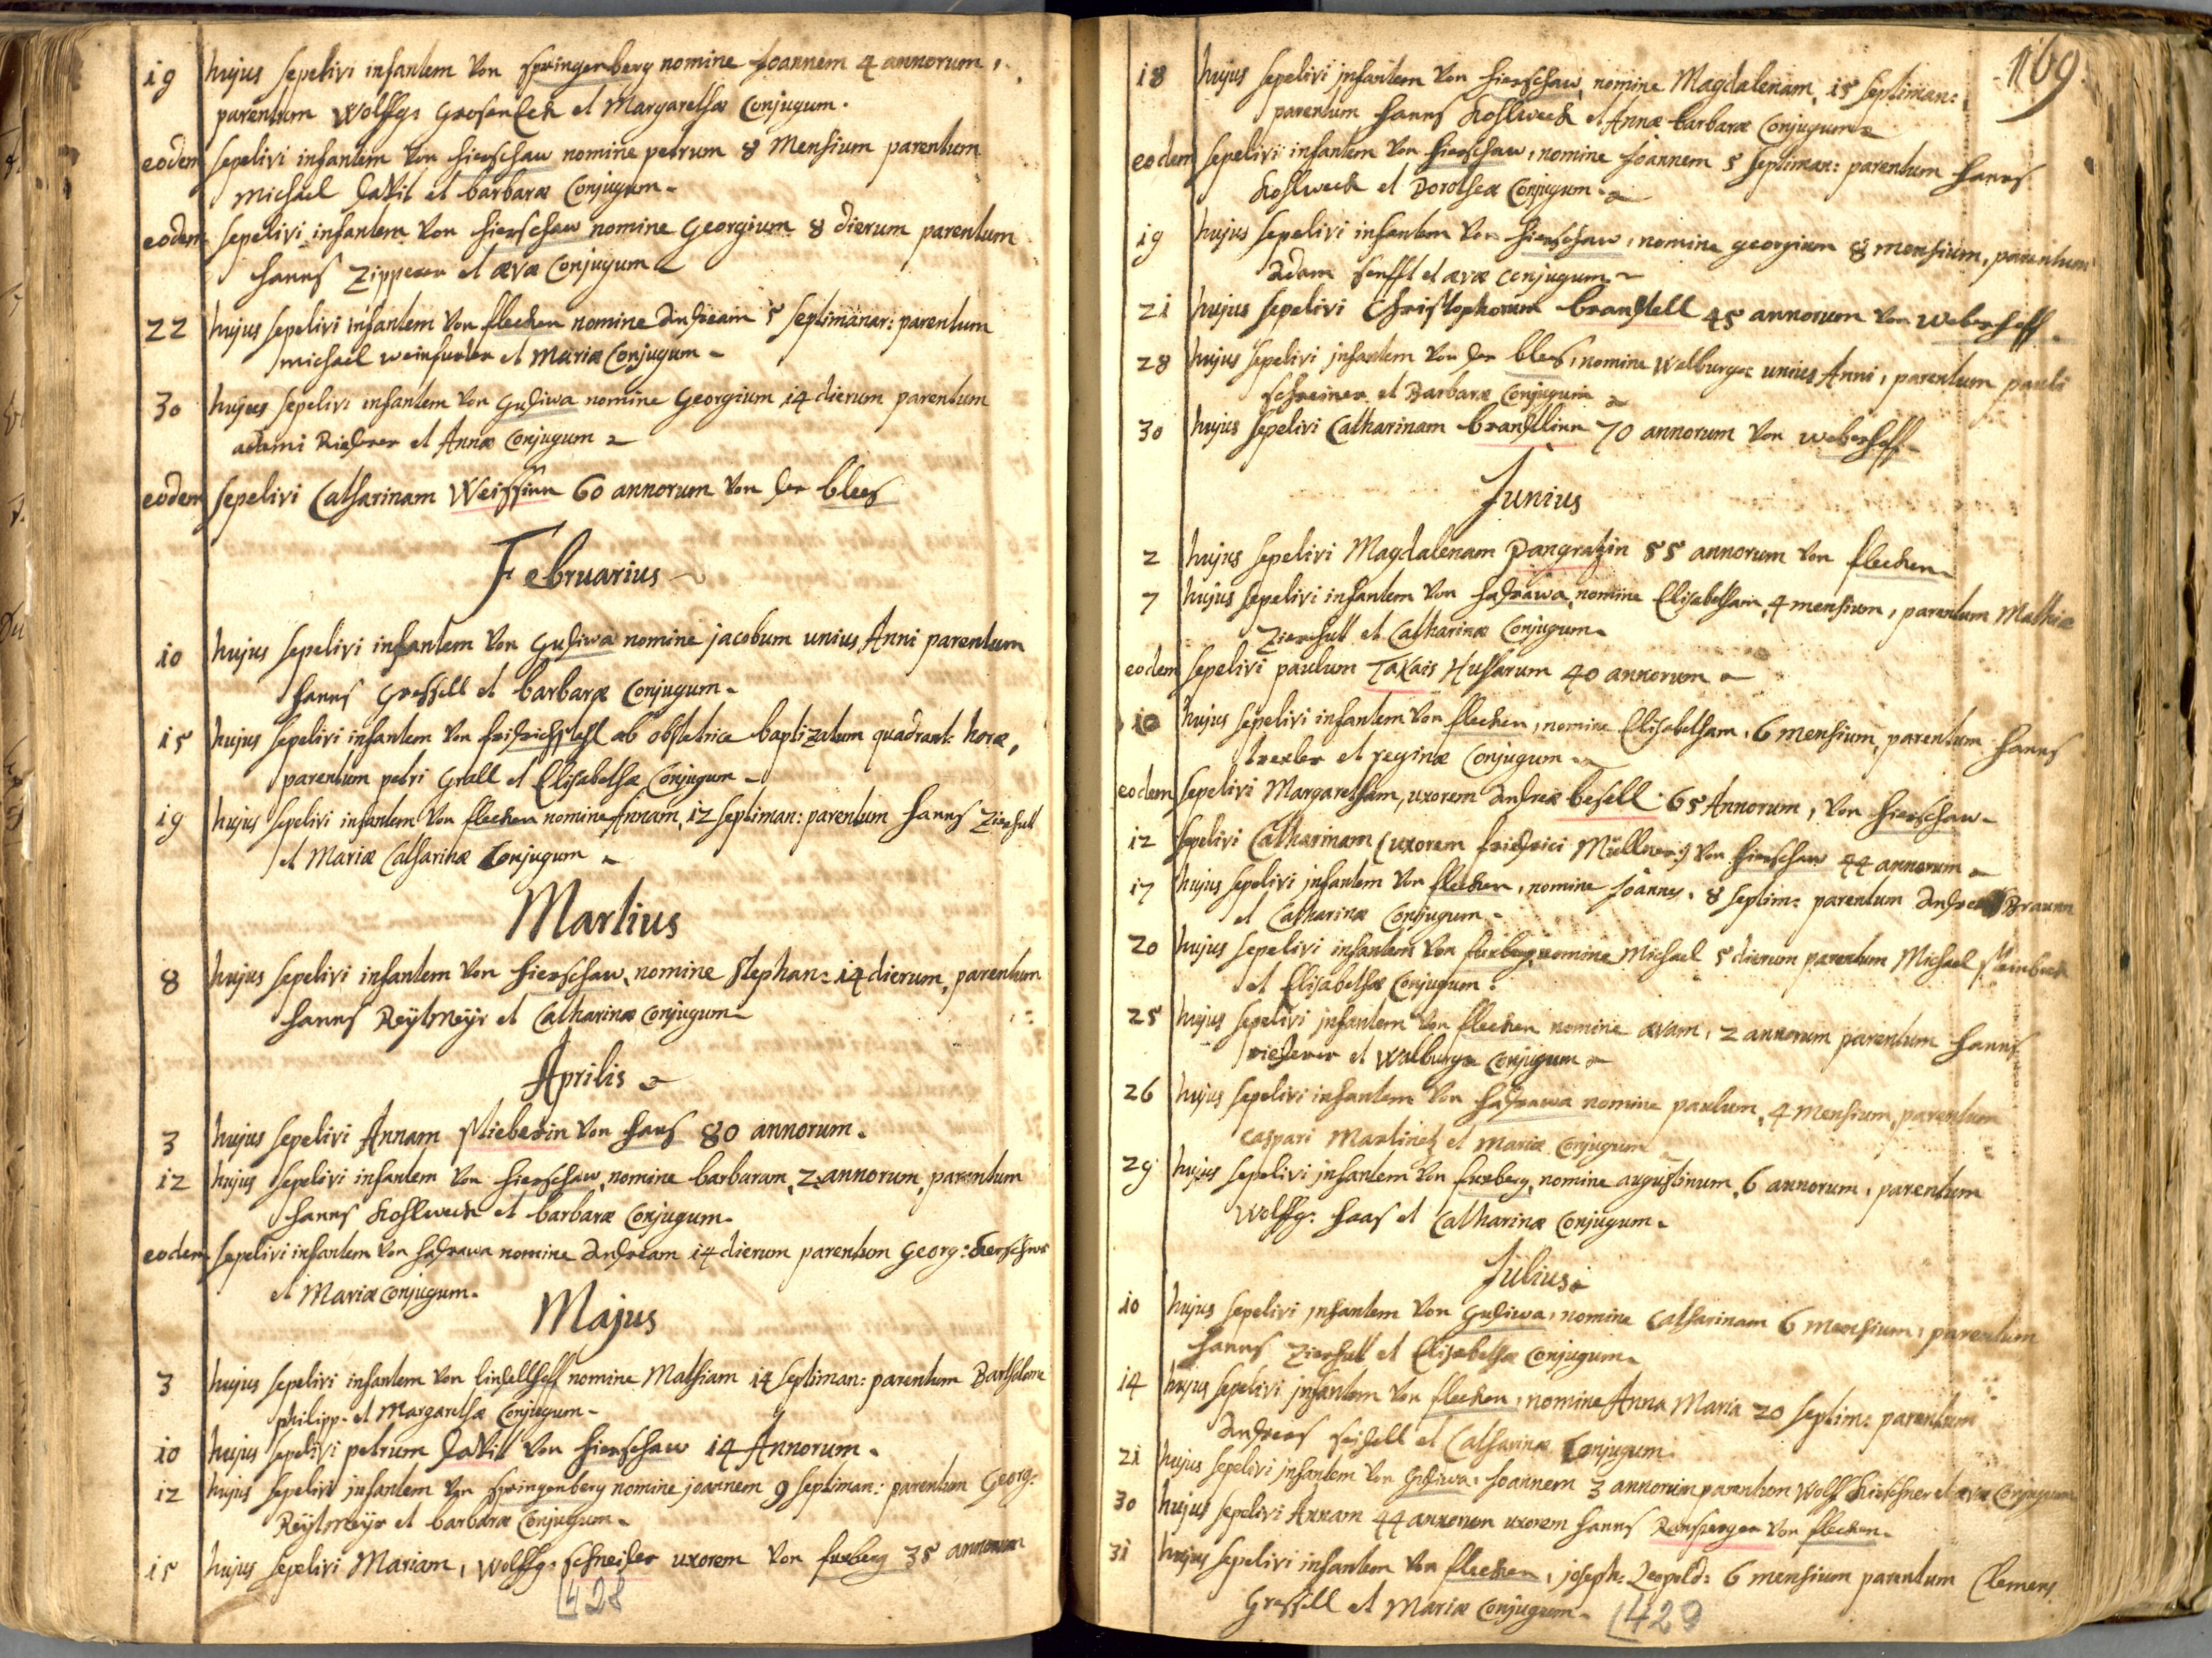 19 hujus sepelivi infantem Von springenberg nomine Joannem 4 annorum,
parentum Wolffg: Grosen Eck et Margarethæ Conjugum.
eodem sepelivi infantem Von hierschaw nomine petrum 8 Mensium parentum
Michael david et barbaræ Conjugum.
eodem sepelivi infantem Von hierschaw nomine Georgium 8 dierum parentum
hanns Zipperer et ævæ Conjugum
22 hujus sepelivi infantem Von flecken nomine Andream 5 septimanar: parentum
michael weinfurter et Mariæ Conjugum
30 hujus sepelivi infantem Von Gudiwa nomine Georgium 14 dierum parentum
adami Riederer et Annæ Conjugum
eodem sepelivi Catharinam Weissinn 60 annorum Von der blees
Februarius
10 hujus sepelivi infantem Von Gudiwa nomine jacobum unius Anni parentum
hanns Gressell et barbaræ Conjugum.
15 hujus sepelivi infantem Von fridrichsthal ab obstetrice baptizatum quadrant: horæ,
parentum petri Grall et Elisabethæ Conjugum
19 hujus sepelivi infantem Von flecken nomine Annam, 12 septiman: parentum hanns Zierhut
et Mariæ Catharinæ Conjugum
Martius
8 hujus sepelivi infantem Von hierschaw, nomine Stephan: 14 dierum, parentum
hanns Reytmeyr et Catharinæ Conjugum
Aprilis
3 hujus sepelivi Annam Stieberin Von haas 80 annorum.
12 hujus sepelivi infantem Von hierschaw, nomine barbaram, 2 annorum, parentum
hanns Kohlweck et barbaræ Conjugum.
eodem sepelivi infantem Von hadrawa nomine Andream 14 dierum parentum Georg: Kerschner
et Mariæ Conjugum.
Majus
3 hujus sepelivi infantem Von nomine Mathiam 14 septiman: parentum Bartholome
philipp. et Margarethæ Conjugum
10 hujus sepelivi petrum david Von hierschaw 14 Annorum.
12 hujus sepelivi infantem Von springenberg nomine joannem 9 septiman: parentum Georg:
Reytmeyr et barbaræ Conjugum.
15 hujus sepelivi Mariam, Wolffg: schneider uxorem Von fuxberg 35 annorum
428
169.
18 hujus sepelivi infantem Von hierschaw, nomine Magdalenam, 15 septiman:
parentum hanns Kohlweck et Annæ barbaræ Conjugum
eodem sepelivi infantem Von hierschaw, nomine Joannem 5 septiman: parentum hanns
Kohlweck et Dorotheæ Conjugum.
19 hujus sepelivi infantem Von hierschaw, nomine georgium 8 mensium, parentum
Adam senfft et ævæ conjugum
21 hujus sepelivi Christophorum brandtell 45 annorum Von weberhoff.
28 hujus sepelivi infantem Von der blees, nomine Walburga unius Anni, parentum pauli
schreiner et Barbaræ Conjugum
30 hujus sepelivi Catharinam brandtlinn 70 annorum Von weberhoff
Junius
2 hujus sepelivi Magdalenam Pangratzin 55 annorum Von flecken
7 hujus sepelivi infantem Von hadrawa, nomine Elisabetham, 4 mensium, parentum Mathiæ
Zierhutt et Catharinæ Conjugum
eodem sepelivi paulum Takais Hussarum 40 annorum
10 hujus sepelivi infantem Von flecken, nomine Elisabetham, 6 mensium, parentum hanns
trexler et reginæ Conjugum
eodem sepelivi Margaretham, uxorem Andreæ besell 65 Annorum, Von hierschaw
12 sepelivi Catharinam (uxorem fridrici Müllner) Von hierschaw 44 annorum
17 hujus sepelivi infantem Von flecken, nomine Joannes, 8 septim: parentum Andreas Braunn
et Catharinæ Conjugum
20 hujus sepelivi infantem Von fuxberg, nomine Michael 5 dierum parentum Michael Steinbeck
et Elisabethæ Conjugum.
25 hujus sepelivi infantem Von flecken nomine ævam, 2 annorum parentum hanns
riederer et Walburgæ Conjugum
26 hujus sepelivi infantem Von hadrawa nomine paulum, 4 mensium, parentum
caspari Martinetz et Mariæ Conjugum
29 hujus sepelivi infantem Von fuxberg, nomine augustinum, 6 annorum, parentum
Wolffg: haas et Catharinæ Conjugum.
Julius
10 hujus sepelivi infantem Von Gudiwa, nomine Catharinam 6 mensium, parentum
hanns Zierhutt et Elisabethæ Conjugum.
14 hujus sepelivi infantem Von flecken, nomine Anna Maria 20 septim: parentum
Andreas seidell et Catharinæ Conjugum
21 hujus sepelivi infantem Von Gudiwa, Joannem 3 annorum parentum Wolff Kirschner et ævæ Conjugum
30 hujus sepelivi Annam 44 annorum uxorem hanns Ransperger Von flecken.
31 hujus sepelivi infantem Von flecken, joseph: Leopold: 6 mensium parentum Clemens
Gressell et Mariæ Conjugum.
429